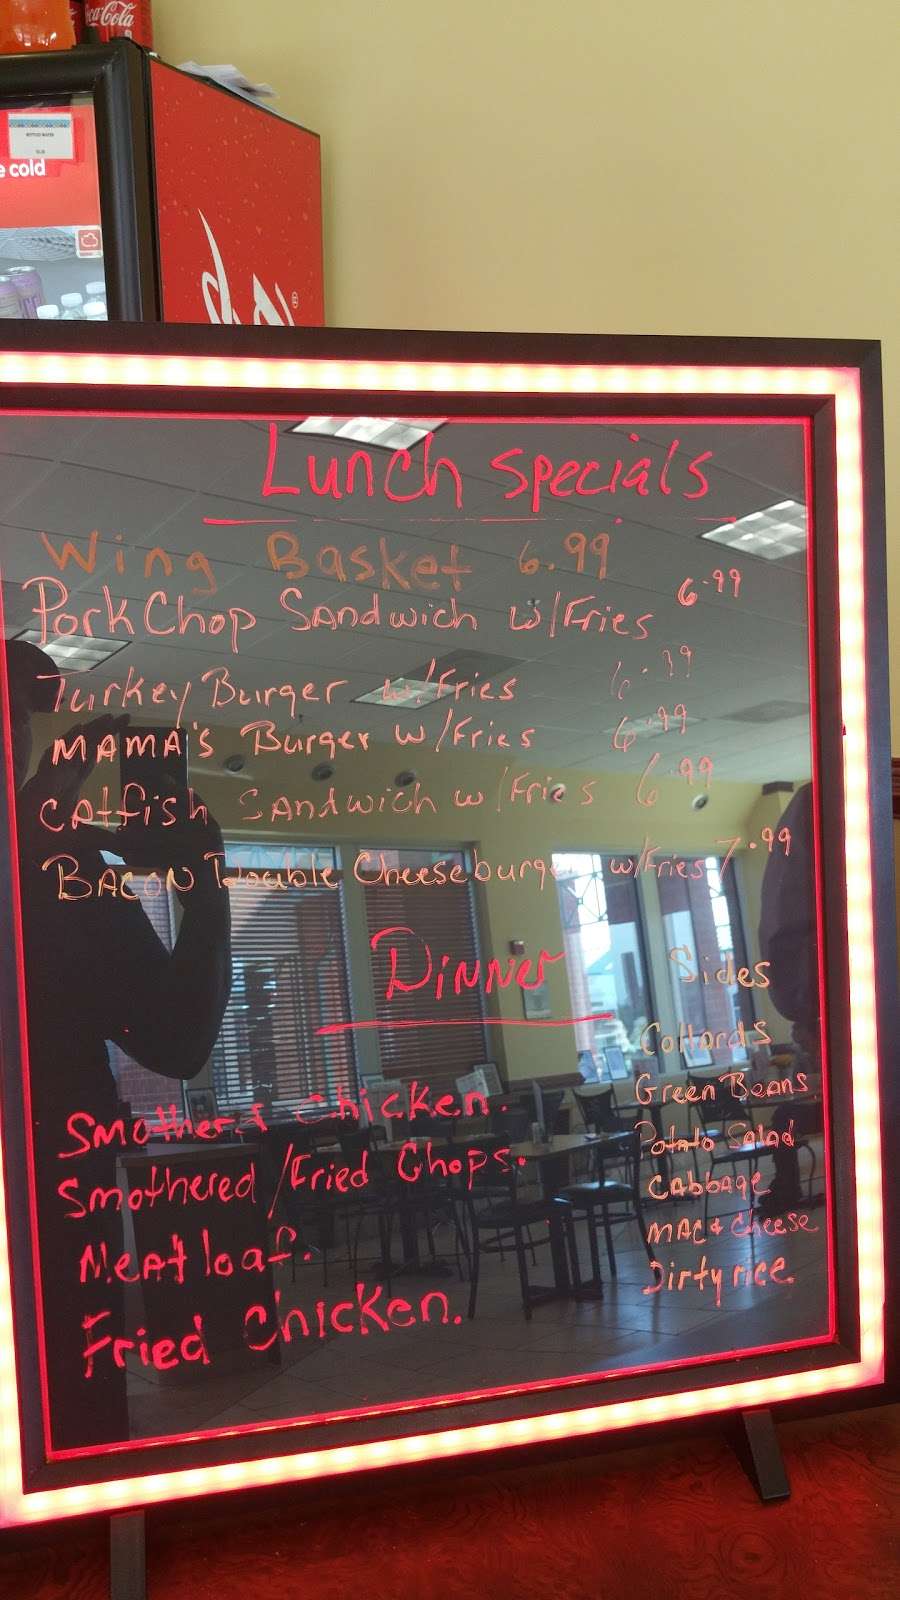 Coca-Cola
BOTTLED WATER
e cold
Lunch specials
Wing Basket 6.99
Pork Chop Sandwich w/Fries 6.99
Turkey Burger w/Fries 6.99
MAMA's Burger w/Fries 6.99
Catfish Sandwich w/Fries 6.99
BACON Double Cheeseburger w/Fries 7.99
Dinner
Smothered Chicken.
Smothered/Fried Chops.
Meatloaf.
Fried Chicken.
Sides
Collards
Green Beans
Potato Salad
Cabbage
MAC & Cheese
Dirty rice